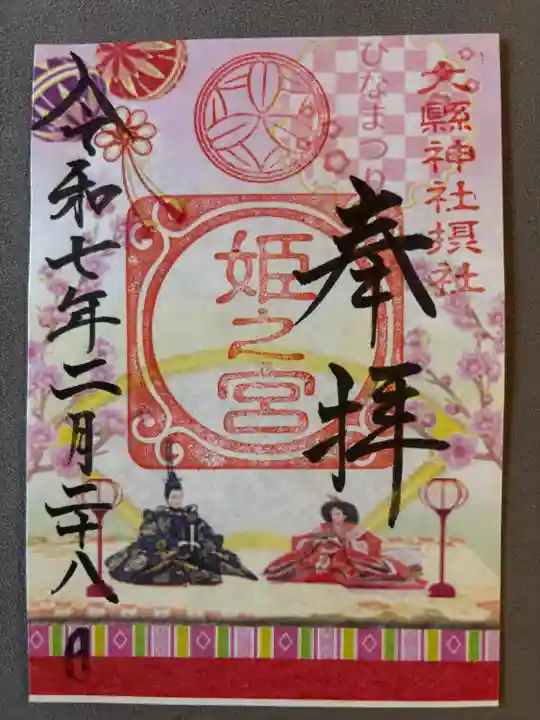 大縣神社摂社
ひなまつり
奉拝
姫之宮
令和七年二月二十八日